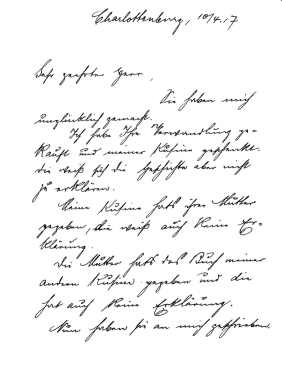 Charlottenburg, 10/4.17
Sehr geehrter Herr,
Sie haben mich
unglücklich gemacht.
Ich habe Ihre Verwandlung ge-
kauft und meiner Kusine geschenkt.
die weiß sich die Geschichte aber nicht
zu erklären.
Meine Kusine hats ihrer Mutter
gegeben, die weiß auch keine Er-
klärung.
Die Mutter hat das Buch meiner
andern Kusine gegeben und die
hat auch keine Erklärung.
Nun haben sie an mich geschrieben.